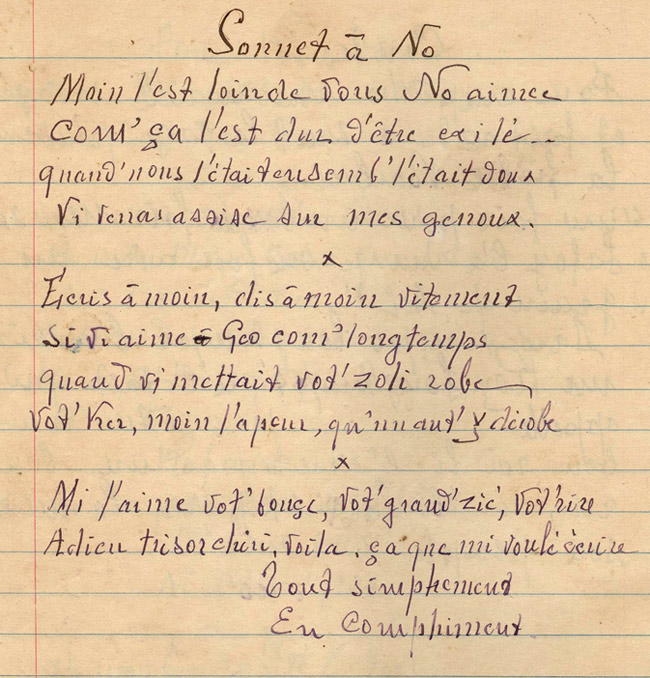 Sonnet à No
Moin l'est loin de vous No aimée
Com' ça l'est dur d'être exilé..
quand' nous l'était ensemb' l'était doux
Vi venai assise sur mes genoux.
x
Écris à moin, dis à moin vitement
Si vi aime à Géo com' longtemps
quand vi mettait vot' zoli robe
Vot' ker, moin l'a peur, qu'un aut' y dérobe
x
Mi l'aime vot' bouce, vot' grand' zié, vot' rire
Adieu trisor chiri, voila, ça que mi voulé écrire
Tout simplement
En Compliment